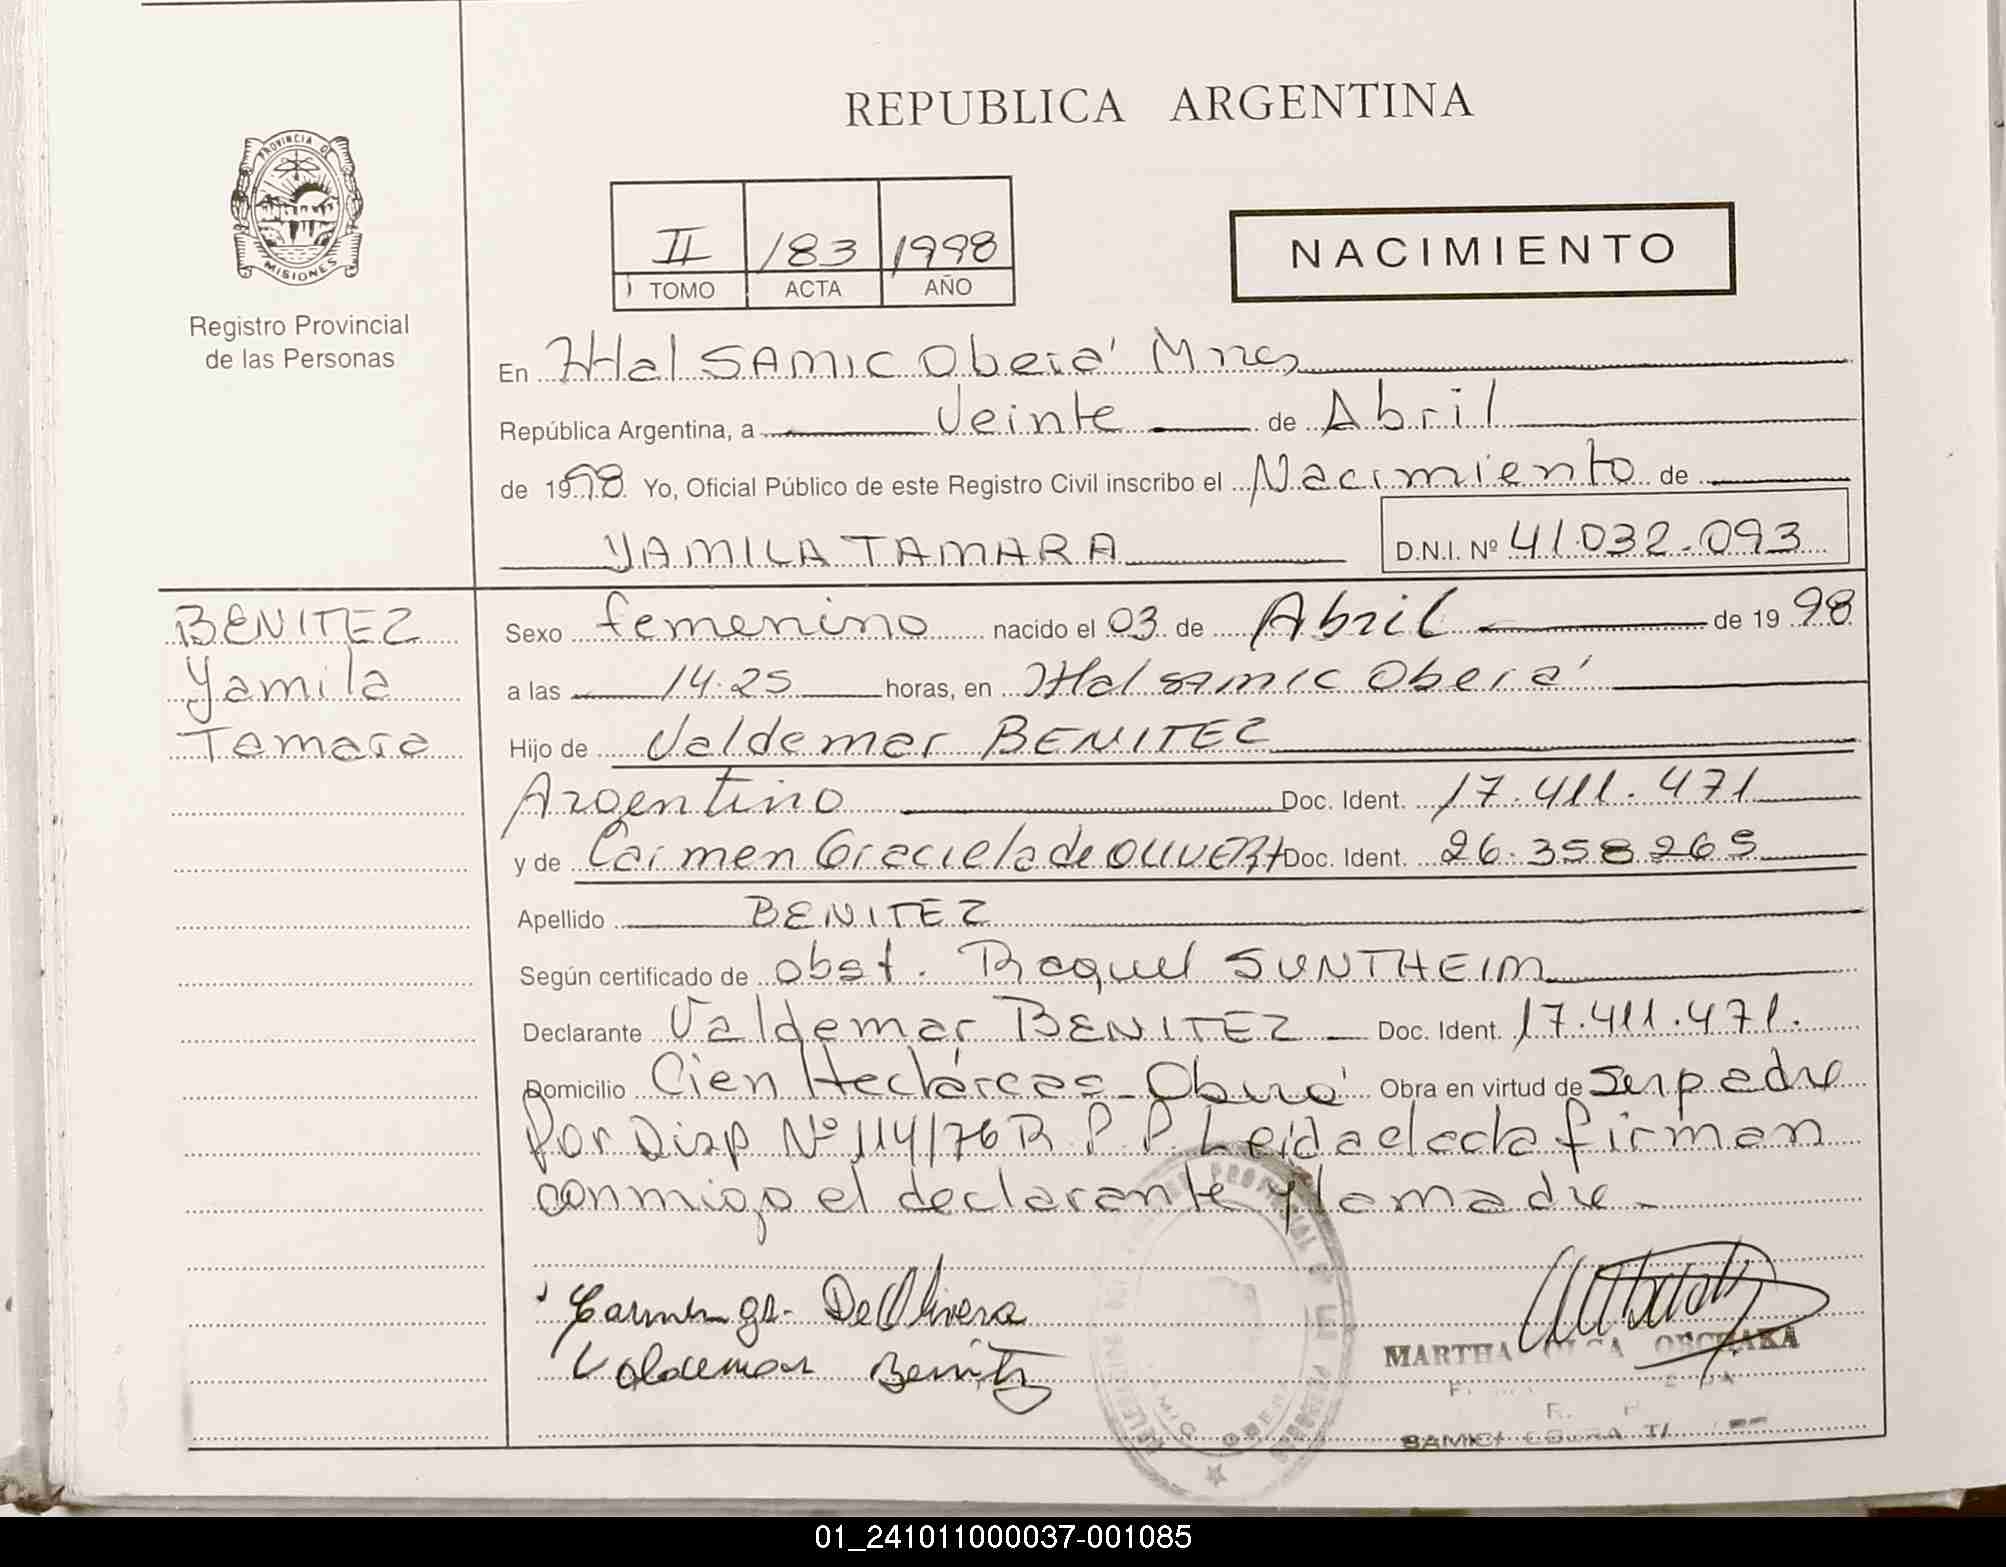 REPUBLICA ARGENTINA
PROVINCIA DE
MISIONES
Registro Provincial
de las Personas
II 183 1998
TOMO ACTA AÑO
NACIMIENTO
En Htal SAMIC Oberá Mnes
República Argentina, a Veinte de Abril
de 1998 Yo, Oficial Público de este Registro Civil inscribo el Nacimiento de
YAMILA TAMARA D.N.I. Nº 41.032.093
BENITEZ
Yamila
Tamara
Sexo femenino nacido el 03 de Abril de 1998
a las 14.25 horas, en Htal SAMIC Oberá
Hijo de Valdemar BENITEZ
Argentino Doc. Ident. 17.411.471
y de Carmen Graciela de OLIVERA Doc. Ident. 26.358265
Apellido BENITEZ
Según certificado de obst. Raquel SUNTHEIM
Declarante Valdemar BENITEZ Doc. Ident. 17.411.471.
Domicilio Cien Hectáreas - Oberá Obra en virtud de Ser padre
Por Disp Nº 114/76 R.P.P. Leida el acta firman
conmigo el declarante y la madre -
Carmen gr. De Olivera
Valdemar Benitz
MARTHA OLGA
SAMIC
01_241011000037-001085